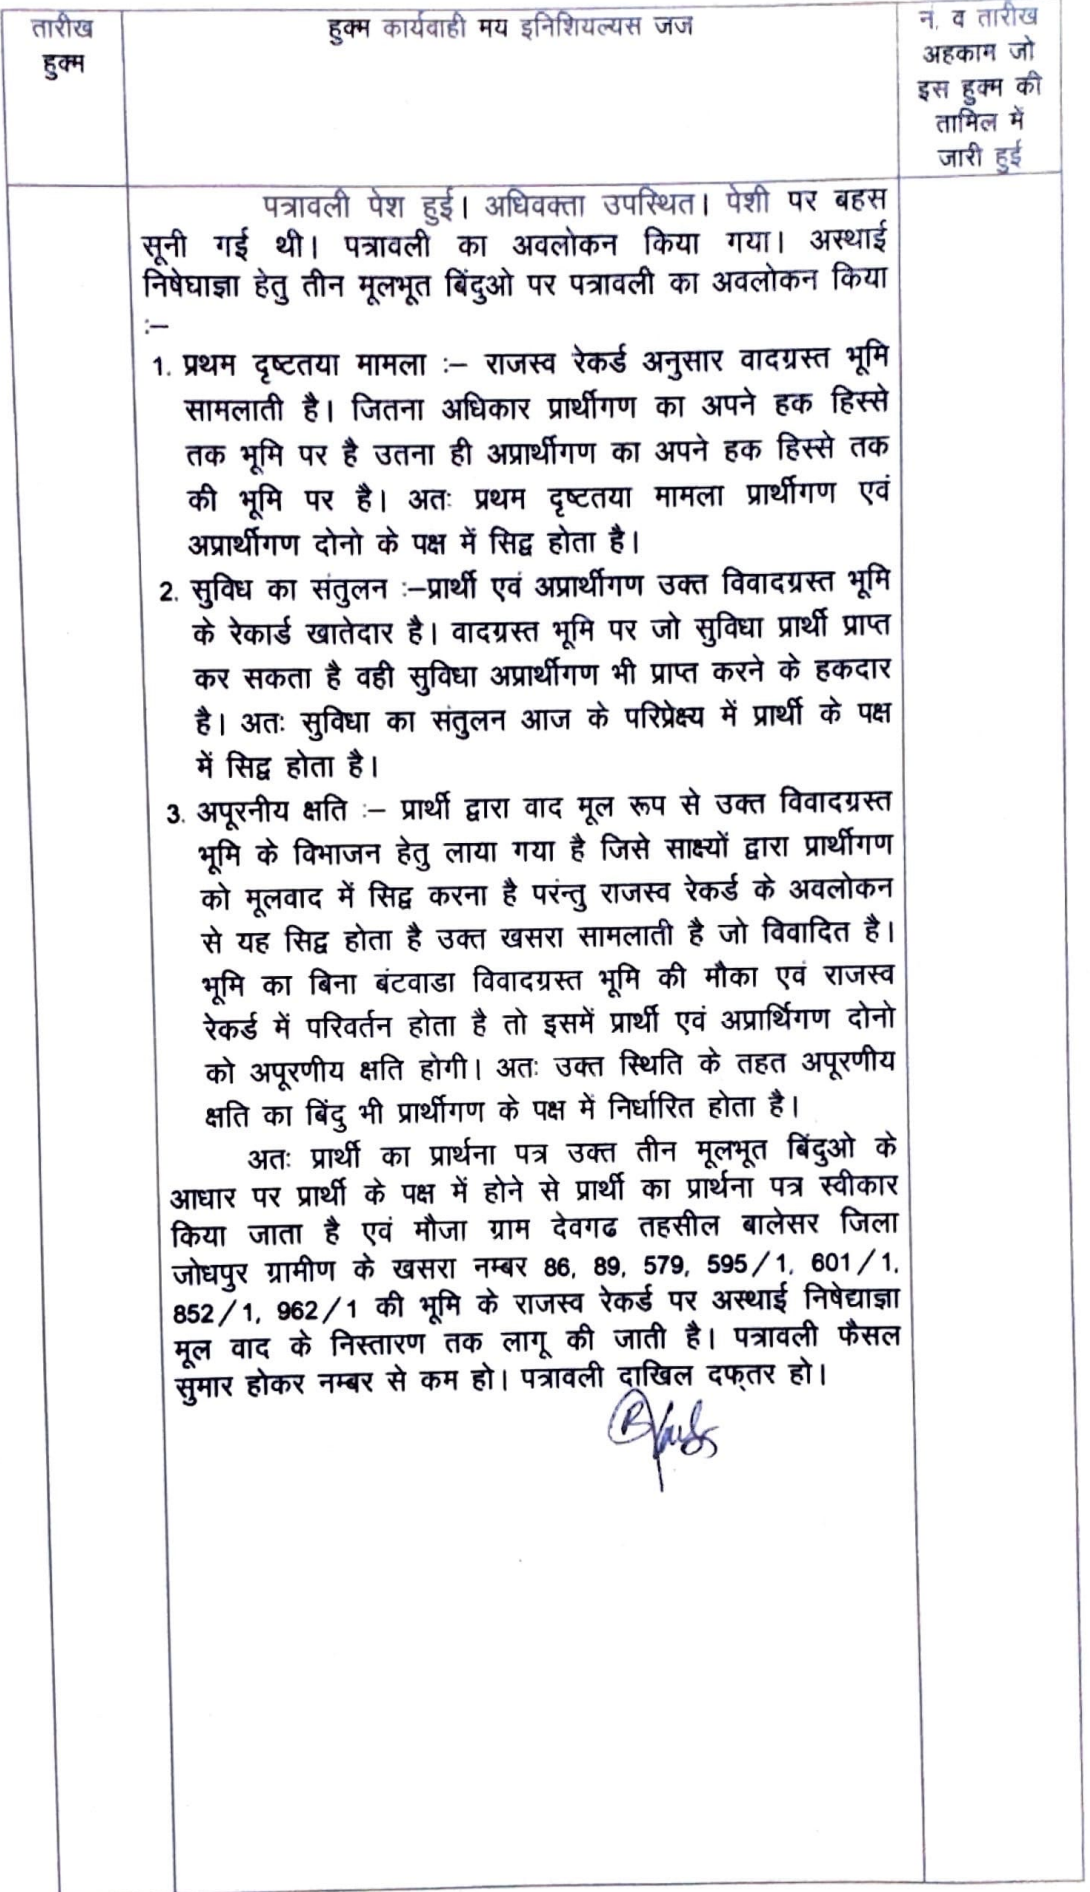 तारीख
हुक्म
हुक्म कार्यवाही मय इनिशियल्यस जज
नं. व तारीख
अहकाम जो
इस हुक्म की
तामिल में
जारी हुई
पत्रावली पेश हुई। अधिवक्ता उपस्थित। पेशी पर बहस
सूनी गई थी। पत्रावली का अवलोकन किया गया। अस्थाई
निषेघाज्ञा हेतु तीन मूलभूत बिंदुओ पर पत्रावली का अवलोकन किया
:–
1. प्रथम दृष्टतया मामला :– राजस्व रेकर्ड अनुसार वादग्रस्त भूमि
सामलाती है। जितना अधिकार प्रार्थीगण का अपने हक हिस्से
तक भूमि पर है उतना ही अप्रार्थीगण का अपने हक हिस्से तक
की भूमि पर है। अतः प्रथम दृष्टतया मामला प्रार्थीगण एवं
अप्रार्थीगण दोनो के पक्ष में सिद्व होता है।
2. सुविध का संतुलन :–प्रार्थी एवं अप्रार्थीगण उक्त विवादग्रस्त भूमि
के रेकार्ड खातेदार है। वादग्रस्त भूमि पर जो सुविधा प्रार्थी प्राप्त
कर सकता है वही सुविधा अप्रार्थीगण भी प्राप्त करने के हकदार
है। अतः सुविधा का संतुलन आज के परिप्रेक्ष्य में प्रार्थी के पक्ष
में सिद्व होता है।
3. अपूरनीय क्षति :– प्रार्थी द्वारा वाद मूल रूप से उक्त विवादग्रस्त
भूमि के विभाजन हेतु लाया गया है जिसे साक्ष्यों द्वारा प्रार्थीगण
को मूलवाद में सिद्व करना है परंन्तु राजस्व रेकर्ड के अवलोकन
से यह सिद्व होता है उक्त खसरा सामलाती है जो विवादित है।
भूमि का बिना बंटवाडा विवादग्रस्त भूमि की मौका एवं राजस्व
रेकर्ड में परिवर्तन होता है तो इसमें प्रार्थी एवं अप्रार्थिगण दोनो
को अपूरणीय क्षति होगी। अतः उक्त स्थिति के तहत अपूरणीय
क्षति का बिंदु भी प्रार्थीगण के पक्ष में निर्धारित होता है।
अतः प्रार्थी का प्रार्थना पत्र उक्त तीन मूलभूत बिंदुओ के
आधार पर प्रार्थी के पक्ष में होने से प्रार्थी का प्रार्थना पत्र स्वीकार
किया जाता है एवं मौजा ग्राम देवगढ तहसील बालेसर जिला
जोधपुर ग्रामीण के खसरा नम्बर 86, 89, 579, 595/1, 601/1,
852/1, 962/1 की भूमि के राजस्व रेकर्ड पर अस्थाई निषेद्याज्ञा
मूल वाद के निस्तारण तक लागू की जाती है। पत्रावली फैसल
सुमार होकर नम्बर से कम हो। पत्रावली दाखिल दफ्तर हो।